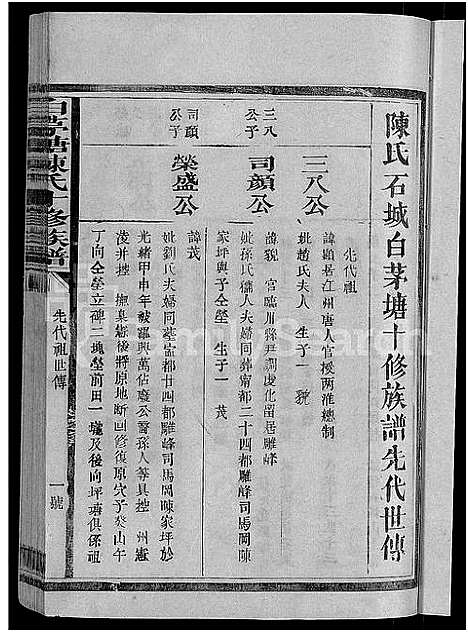 陳氏石城白茅塘十修族譜先代世傳
先代祖
三八公
諱顯居江州唐人官授兩淮總制
妣趙氏夫人 生子一 貌
三八公子
司顔公
諱貌 官臨川縣尹調虔化留居雕峰
妣孫氏孺人夫婦同葬甯都二十四都雕峰司馬岡陳
家坪與子仝塋 生子一 茂
司顔公子
榮盛公
諱茂
妣劉氏夫婦同塋甯都廿四都雕峰司馬岡陳家坪於
光緒甲申年被羅興萬佔廢公醫孫人等具控 州憲
淩并控 撫臬憲後將原地断回修復原穴子癸山午
丁向仝塋立碑三塊塋前田一壠及後向坪壙俱係祖
白茅塘陳氏十修族譜
先代祖世傳
一號
FamilySearch